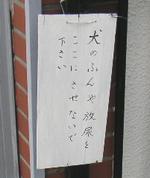 犬のふんや放尿を
ここにさせないで
下さい